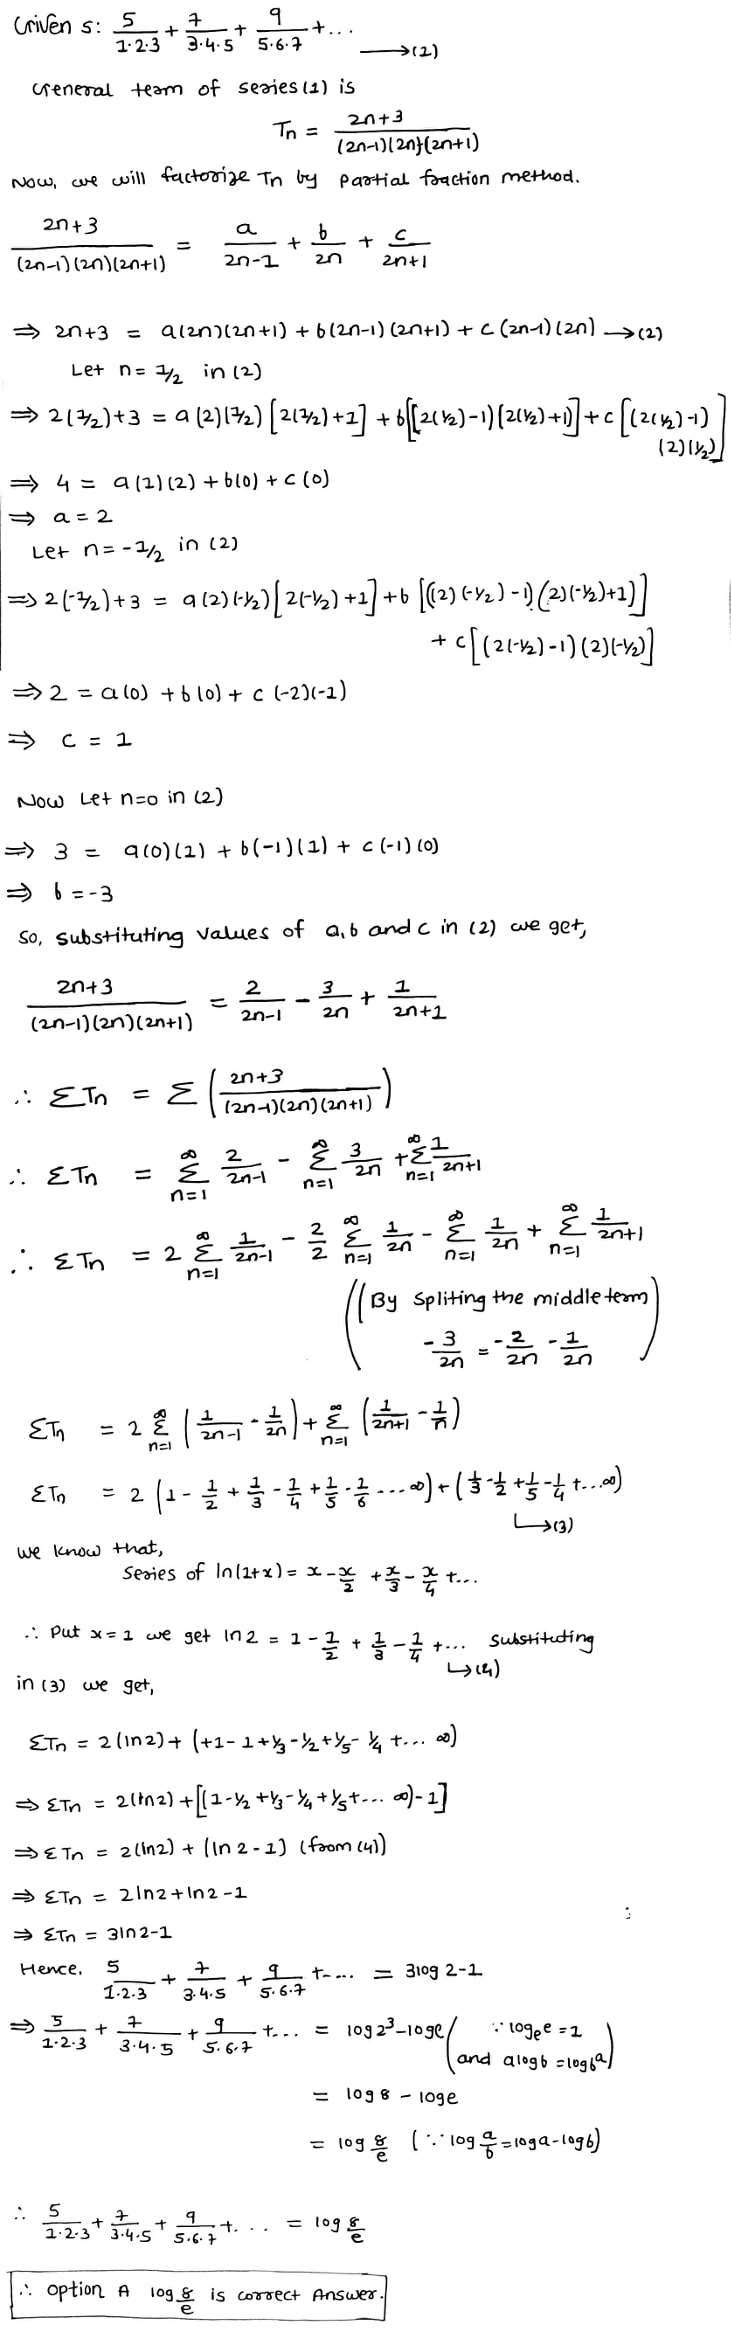 Given S: 5/1·2·3 + 7/3·4·5 + 9/5·6·7 + ... ⟶(1)
General term of series (1) is
Tn = 2n+3/(2n-1)(2n)(2n+1)
Now, we will factorize Tn by Partial fraction method.
2n+3/(2n-1)(2n)(2n+1) = a/2n-1 + b/2n + c/2n+1
⇒ 2n+3 = a(2n)(2n+1) + b(2n-1)(2n+1) + c(2n-1)(2n) →(2)
Let n= 1/2 in (2)
⇒ 2(1/2)+3 = a(2)(1/2)[2(1/2)+1] + b[(2(1/2)-1)(2(1/2)+1)] + c[(2(1/2)-1)
(2)(1/2)]
⇒ 4 = a(1)(2) + b(0) + c(0)
⇒ a = 2
Let n= -1/2 in (2)
⇒ 2(-1/2)+3 = a(2)(-1/2)[2(-1/2)+1] + b[((2)(-1/2)-1)(2)(-1/2)+1)]
+ c[(2(-1/2)-1)(2)(-1/2)]
⇒ 2 = a(0) + b(0) + c(-2)(-1)
⇒ c = 1
Now Let n=0 in (2)
⇒ 3 = a(0)(1) + b(-1)(1) + c(-1)(0)
⇒ b = -3
So, substituting values of a,b and c in (2) we get,
2n+3/(2n-1)(2n)(2n+1) = 2/2n-1 - 3/2n + 1/2n+1
∴ ΣTn = Σ(2n+3/(2n-1)(2n)(2n+1))
∴ ΣTn = ∞Σn=1 2/2n-1 - ∞Σn=1 3/2n + ∞Σn=1 1/2n+1
∴ ΣTn = 2 ∞Σn=1 1/2n-1 - 2/2 ∞Σn=1 1/2n - ∞Σn=1 1/2n + ∞Σn=1 1/2n+1
((By Spliting the middle term
-3/2n = -2/2n - 1/2n)
ΣTn = 2 ∞Σn=1 (1/2n-1 - 1/2n) + ∞Σn=1 (1/2n+1 - 1/n)
ΣTn = 2(1 - 1/2 + 1/3 - 1/4 + 1/5 - 1/6 .... ∞) + (1/3 - 1/2 + 1/5 - 1/4 + ... ∞)
↳(3)
we know that,
Series of ln(1+x) = x - x/2 + x/3 - x/4 + ...
∴ Put x=1 we get ln2 = 1 - 1/2 + 1/3 - 1/4 + ... substituting
↳(4)
in (3) we get,
ΣTn = 2(ln2) + (+1-1+1/3-1/2+1/5-1/4 + ... ∞)
⇒ ΣTn = 2(ln2) + [(1-1/2+1/3-1/4+1/5+... ∞)-1]
⇒ ΣTn = 2(ln2) + (ln2-1) (from (4))
⇒ ΣTn = 2ln2+ln2-1
⇒ ΣTn = 3ln2-1
Hence, 5/1·2·3 + 7/3·4·5 + 9/5·6·7 + .... = 3log2-1
⇒ 5/1·2·3 + 7/3·4·5 + 9/5·6·7 + ... = log2³-loge (∵ logₑe = 1
and alogb = logbᵃ)
= log8 - loge
= log 8/e (∵ log a/b = loga-logb)
∴ 5/1·2·3 + 7/3·4·5 + 9/5·6·7 + ... = log 8/e
∴ Option A log 8/e is correct Answer.